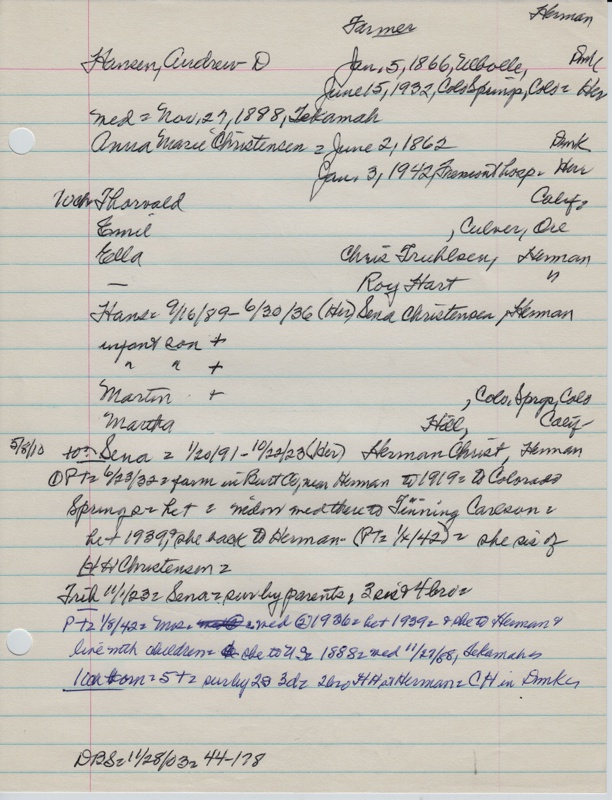 Farmer Herman
Hansen, Andrew D Jan. 5, 1866, Ulbolle, Dmk
June 15, 1932, Colo Springs, Colo = Her
med = Nov. 27, 1888, Tekamah
Anna Marie Christensen = June 2, 1862 Dmk
Jan. 3, 1942, Fremont hosp = Her
10ch Thorvald Calif.
Emil , Culver, Ore
Ella Chris Truhlsen, Herman
— Roy Hart "
Hans = 9/16/89 - 6/30/36 (Her) Sena Christensen, Herman
infant son +
" " +
Martin + , Colo. Sprgs, Colo
Martha Hill, Calif
5/8/10 to = Sena = 1/20/91 - 10/22/23 (Her) Herman Christ, Herman
① PT = 6/23/32 = farm in Burt Co, near Herman to 1919 = to Colorado
Springs = he + = widow med there to Tinning Carlson =
he + 1939, & she back to Herman - (PT = 1/8/42) = she sis of
H H Christensen =
Trib 11/1/23 = Sena = sur by parents, 3 sis & 4 bro =
PT = 1/8/42 = Mrs = med ② 1936 = he + 1939 = & she to Herman &
live with children = she to US = 1888 = med 11/27/88, Tekamah =
10ch born = 5 + = sur by 2s 3d = 2 bro HH at Herman = CH in Dmk =
DBS = 11/28/03 = 44-178